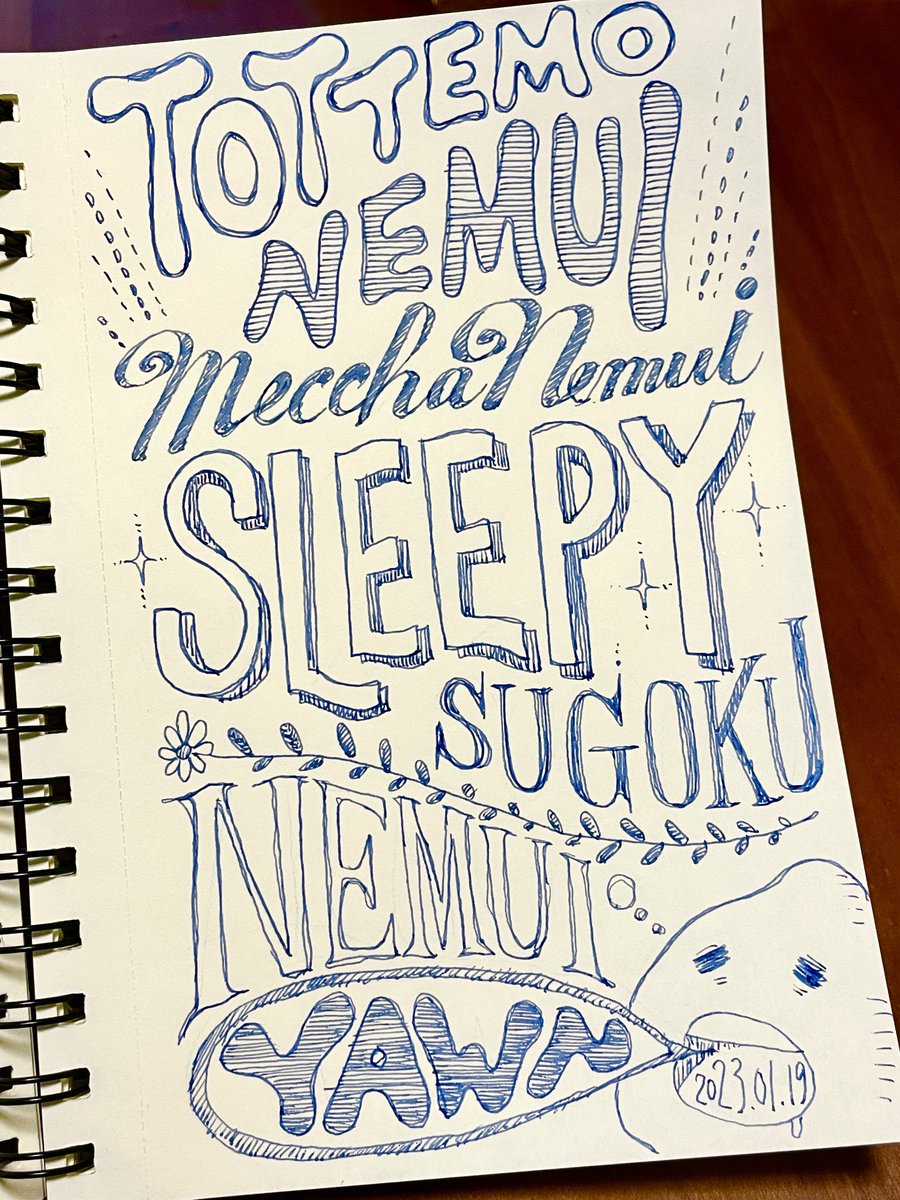 TOTTEMO
NEMUI
Meccha Nemui
SLEEPY
SUGOKU
NEMUI
YAWN
2023.01.19